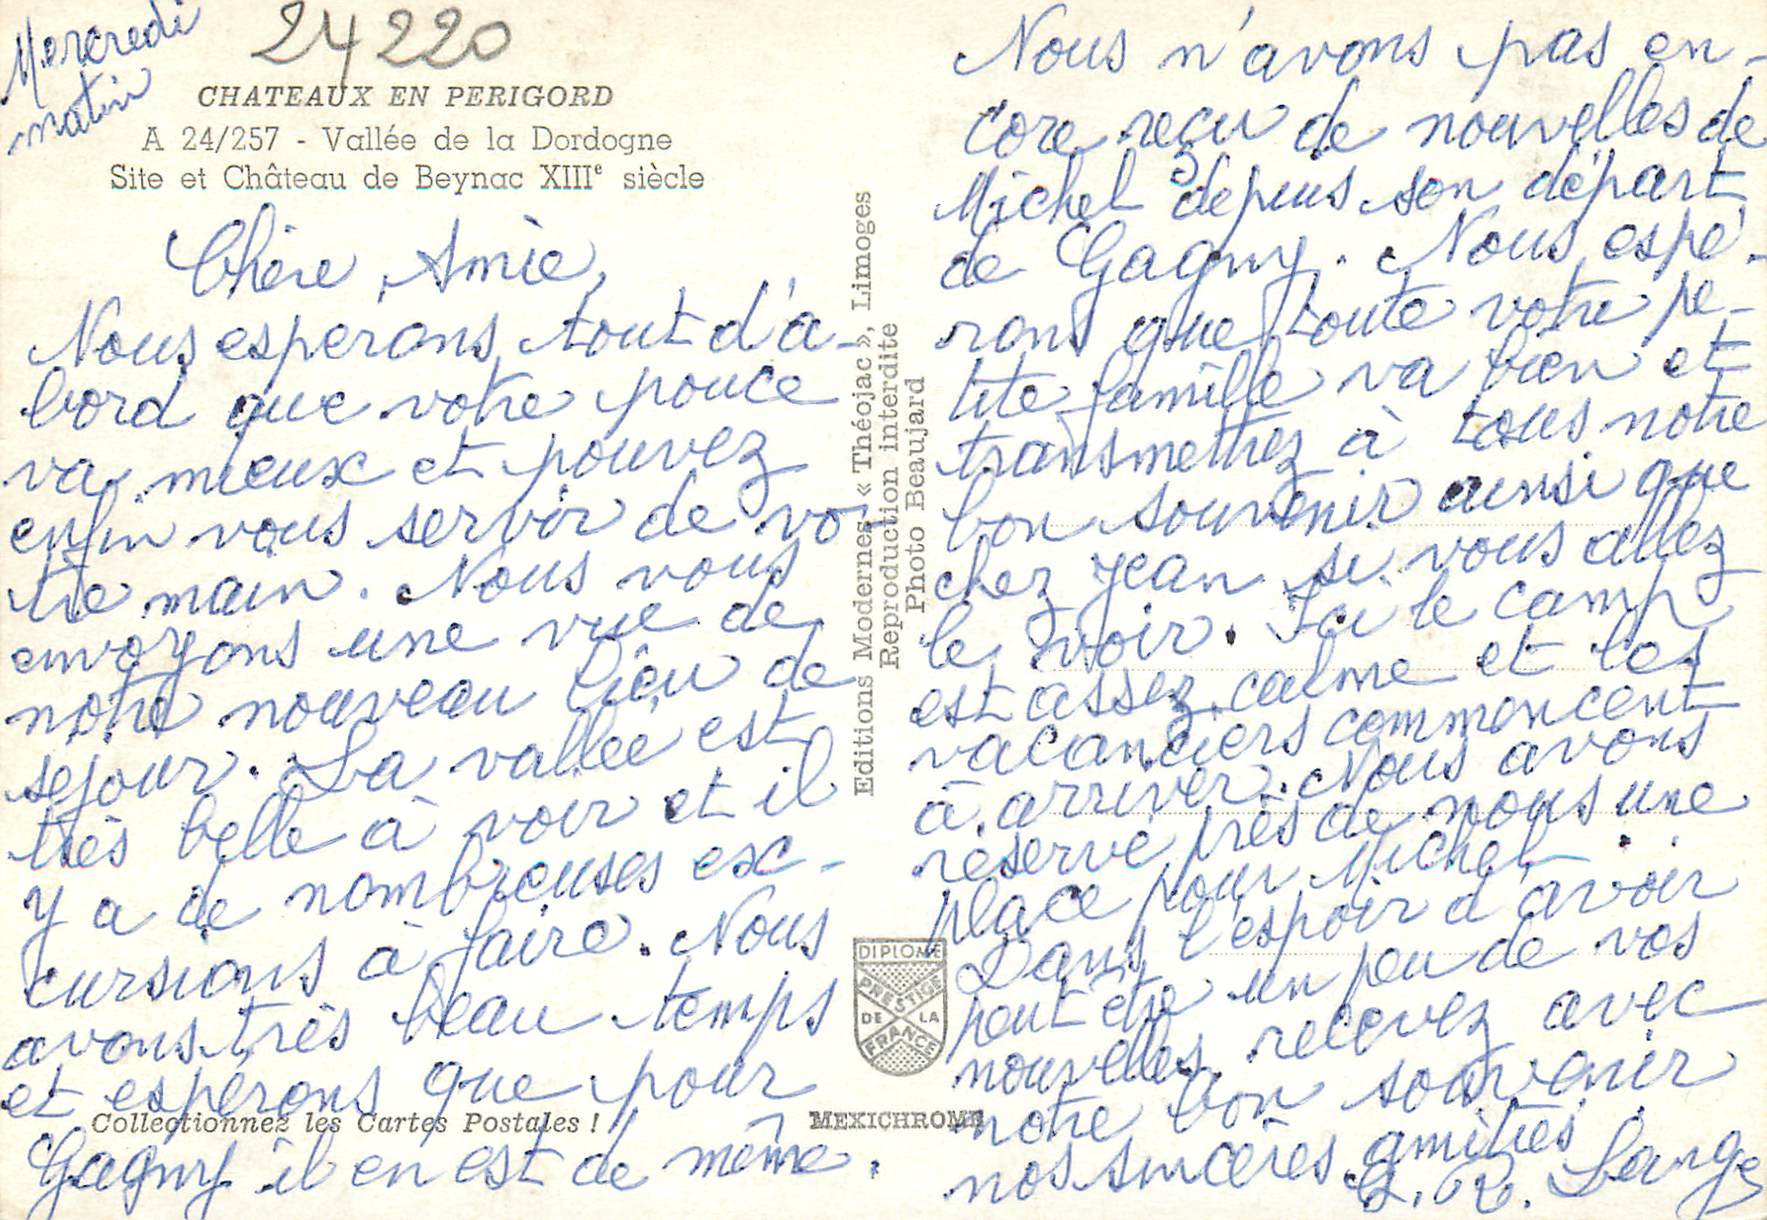 Mercredi
matin
24220
CHATEAUX EN PERIGORD
A 24/257 - Vallée de la Dordogne
Site et Château de Beynac XIIIe siècle
Chère Amie,
Nous esperons tout d'a-
bord que votre pouce
va mieux et pouvez
enfin vous servir de vo-
tre main. Nous vous
envoyons une vue de
notre nouveau lieu de
sejour. La vallée est
très belle à voir et il
y a de nombreuses ex-
cursions à faire. Nous
avons très beau temps
et espérons que pour
Gagny il en est de même.
Collectionnez les Cartes Postales !
Editions Modernes « Théojac », Limoges
Reproduction interdite
Photo Beaujard
DIPLOME
PRESTIGE
DE LA
FRANCE
MEXICHROME
Nous n'avons pas en-
core reçu de nouvelles de
Michel depuis son départ
de Gagny. Nous espé-
rons que toute votre pe-
tite famille va bien et
transmettez à tous notre
bon souvenir ainsi que
chez Jean si vous allez
le voir. Ici le camp
est assez calme et les
vacanciers commencent
à arriver. Nous avons
réservé près de nous une
place pour Michel.
Dans l'espoir d'avoir
peut être un peu de vos
nouvelles, recevez avec
notre bon souvenir
nos sincères amitiés
G. R. Lange